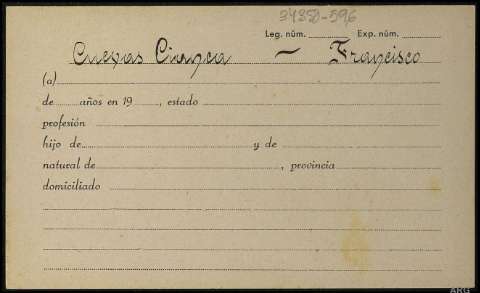 34350-596
Leg. núm. Exp. núm.
Cuevas Ciruyca — Francisco
(a)
de años en 19 , estado
profesión
hijo de y de
natural de , provincia
domiciliado
ARG